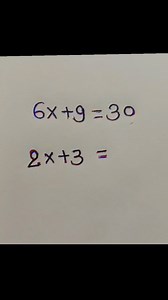 6x+9=30
2x+3 =